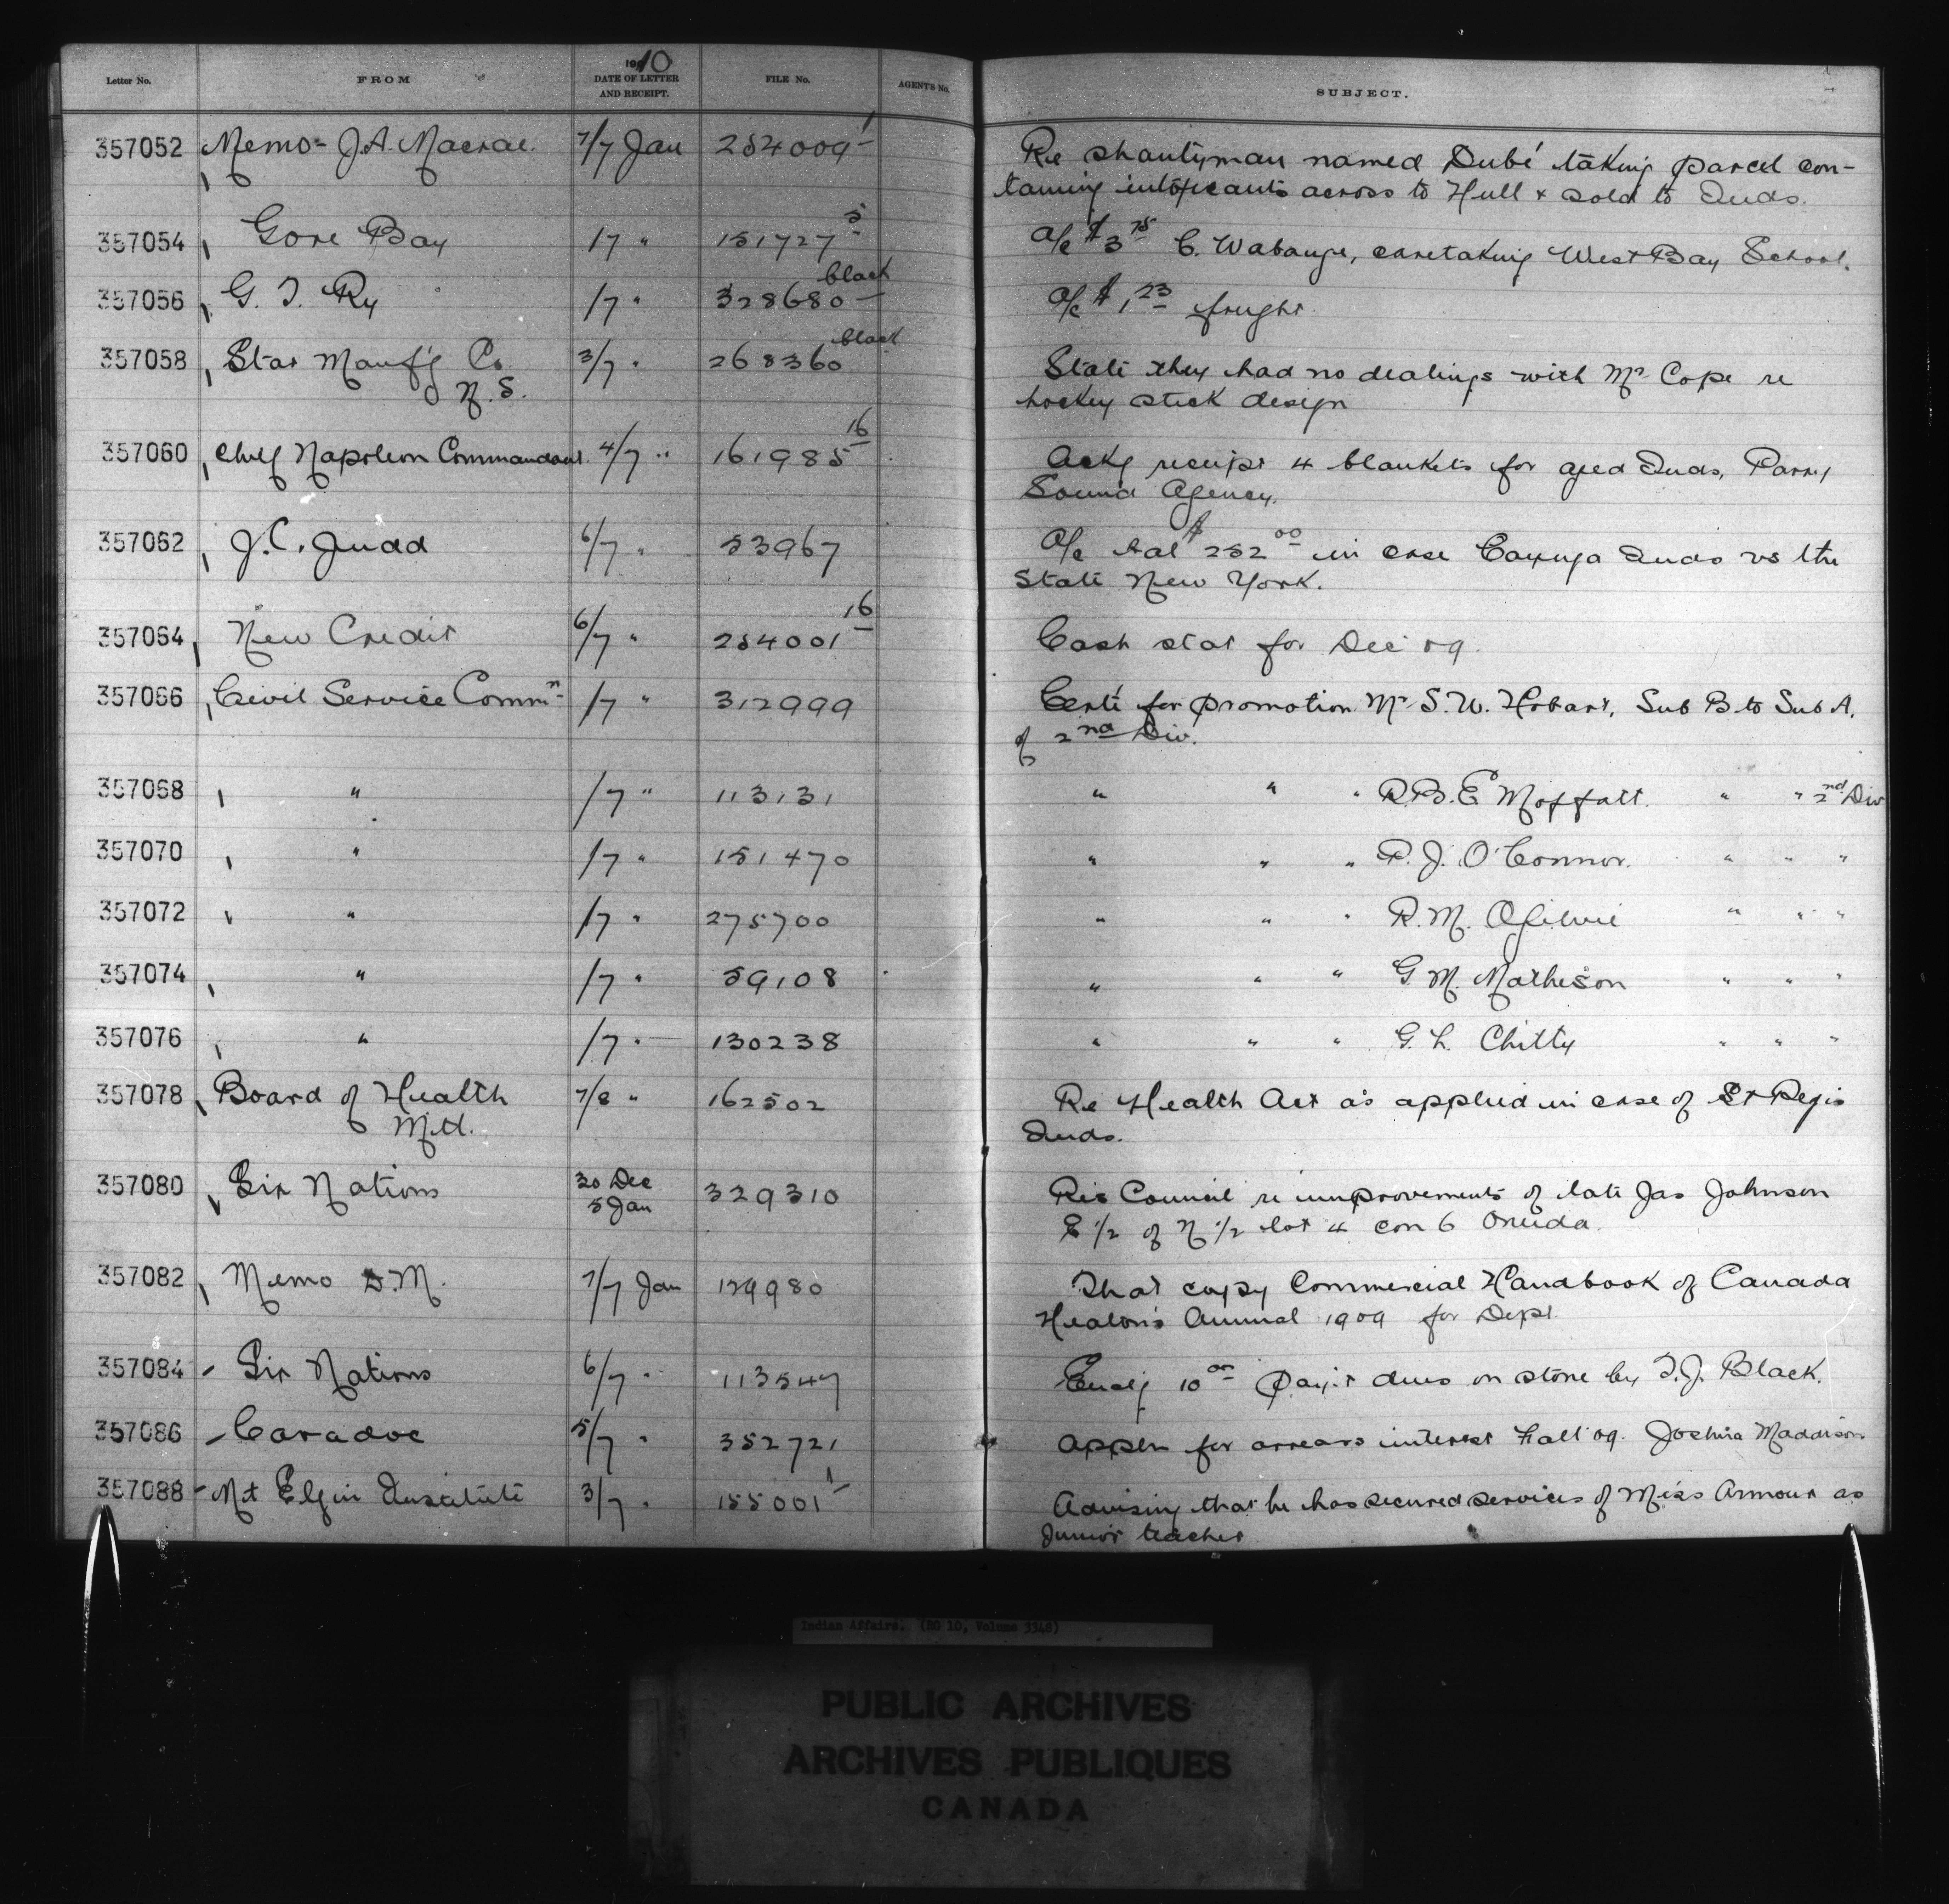 Letter No. FROM 1910 DATE OF LETTER AND RECEIPT. FILE No. AGENT'S No. SUBJECT.
357052 Memo- J.A. Macrae. 7/7 Jan 254009-1 Re shantyman named Dubé taking parcel con-
taining intoxicants across to Hull & sold to Inds.
357054 Gore Bay /7 " 151727-5 a/c $3 75 C. Wabange, caretaking West Bay School.
357056 G. T. Ry /7 " 328680- black a/c $1,23 freight
357058 Star Manf'g Co. 3/7 " 268360 black State they had no dealings with Mr Cope re
N.S. hockey stick design
357060 Chief Napoleon Commandant 4/7 " 161985 16 Ackg receipt 4 blankets for aged Inds, Parry
Sound Agency.
357062 J.C. Judd 6/7 " 53967 a/c bal $252 00 in case Cayuga Inds vs the
State New York.
357064 New Credit 6/7 " 254001 16 Cash stat for Dec 09.
357066 Civil Service Commn- /7 " 312999 Certe for promotion Mr S.W. Hobart, Sub B to Sub A.
of 2nd Div.
357068 " /7 " 113131 " " " R.B.E. Moffatt. " " 2nd Div
357070 " /7 " 151470 " " " P. J. O'Connor. " " "
357072 " /7 " 275700 " " " R.M. Ogilvie " " "
357074 " /7 " 59108 " " " G. M. Matheson " " "
357076 " /7 " 130238 " " " G. L. Chitty " " "
357078 Board of Health 7/8 " 162502 Re Health Act as applied in case of St Regis
Mtl. Inds.
357080 Six Nations 30 Dec 329310 Res Council re improvements of late Jas Johnson
5 Jan E 1/2 of N 1/2 lot 4 con 6 Oneida.
357082 Memo D.M. 7/7 Jan 129980 That copy Commercial Handbook of Canada
Heaton's Annual 1909 for Dept.
357084 - Six Nations 6/7 " 113547 Enclg 10 00 pay't dues on stone by T.J. Black.
357086 - Caradoc 5/7 " 352721 Appln for arrears interest Fall 09. Joshua Maddison
357088 - Mt Elgin Institute 3/7 " 155001-1 Advising that he has secured services of Miss Armour as
Junior teacher
Indian Affairs. (RG 10, Volume 3348)
PUBLIC ARCHIVES
ARCHIVES PUBLIQUES
CANADA